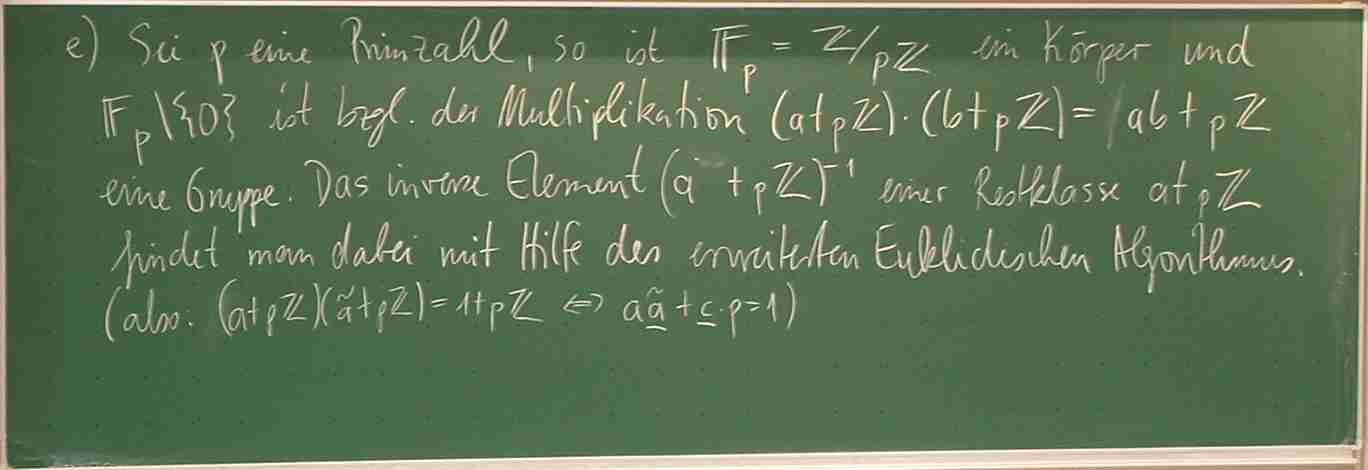 e) Sei p eine Primzahl, so ist 𝔽_p = ℤ/pℤ ein Körper und
𝔽_p\{0} ist bzgl. der Multiplikation (a+pℤ)·(b+pℤ)= ab+pℤ
eine Gruppe. Das inverse Element (a +pℤ)⁻¹ einer Restklasse a+pℤ
findet man dabei mit Hilfe des erweiterten Euklidischen Algorithmus.
(also: (a+pℤ)(ã+pℤ)=1+pℤ ⇔ aã+c·p=1)